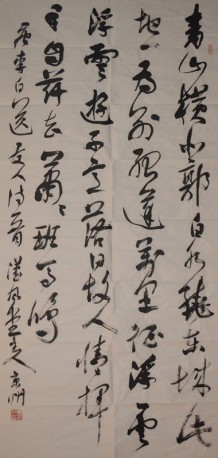 青山橫北郭白水繞東城此
地一為別孤蓬萬里征浮雲
浮雲遊子意落日故人情揮
手自茲去蕭蕭班馬鳴
唐李白送友人詩一首